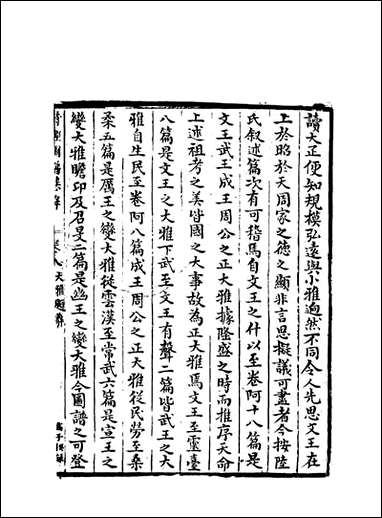 讀大正便知規模弘遠與小雅迥然不同今人先思文王在
上於昭於天周家之德之顯非言思擬議可盡者今按陸
氏叙述篇次有可稽焉自文王之什以至卷阿十八篇是
文王武王成王周公之正大雅據隆盛之時而推序天命
上述祖考之美皆國之大事故為正大雅焉文王至靈臺
八篇是文王之大雅下武至文王有聲二篇皆武王之大
雅自生民至卷阿八篇成王周公之正大雅從民勞至桑
柔五篇是厲王之變大雅從雲漢至常武六篇是宣王之
變大雅瞻卬及召旻二篇是幽王之變大雅今圖譜之可登
卷八大雅題辭